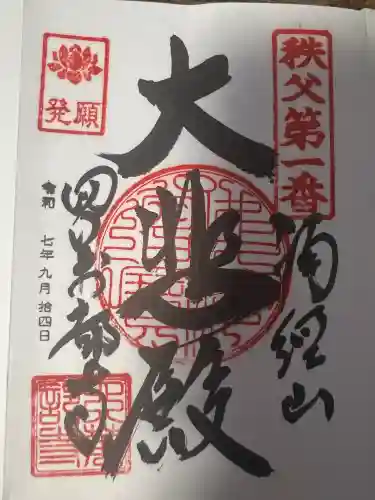 秩父第一番
誦経山
大悲殿
発願
四萬部寺
令和 七年 九月 拾四日